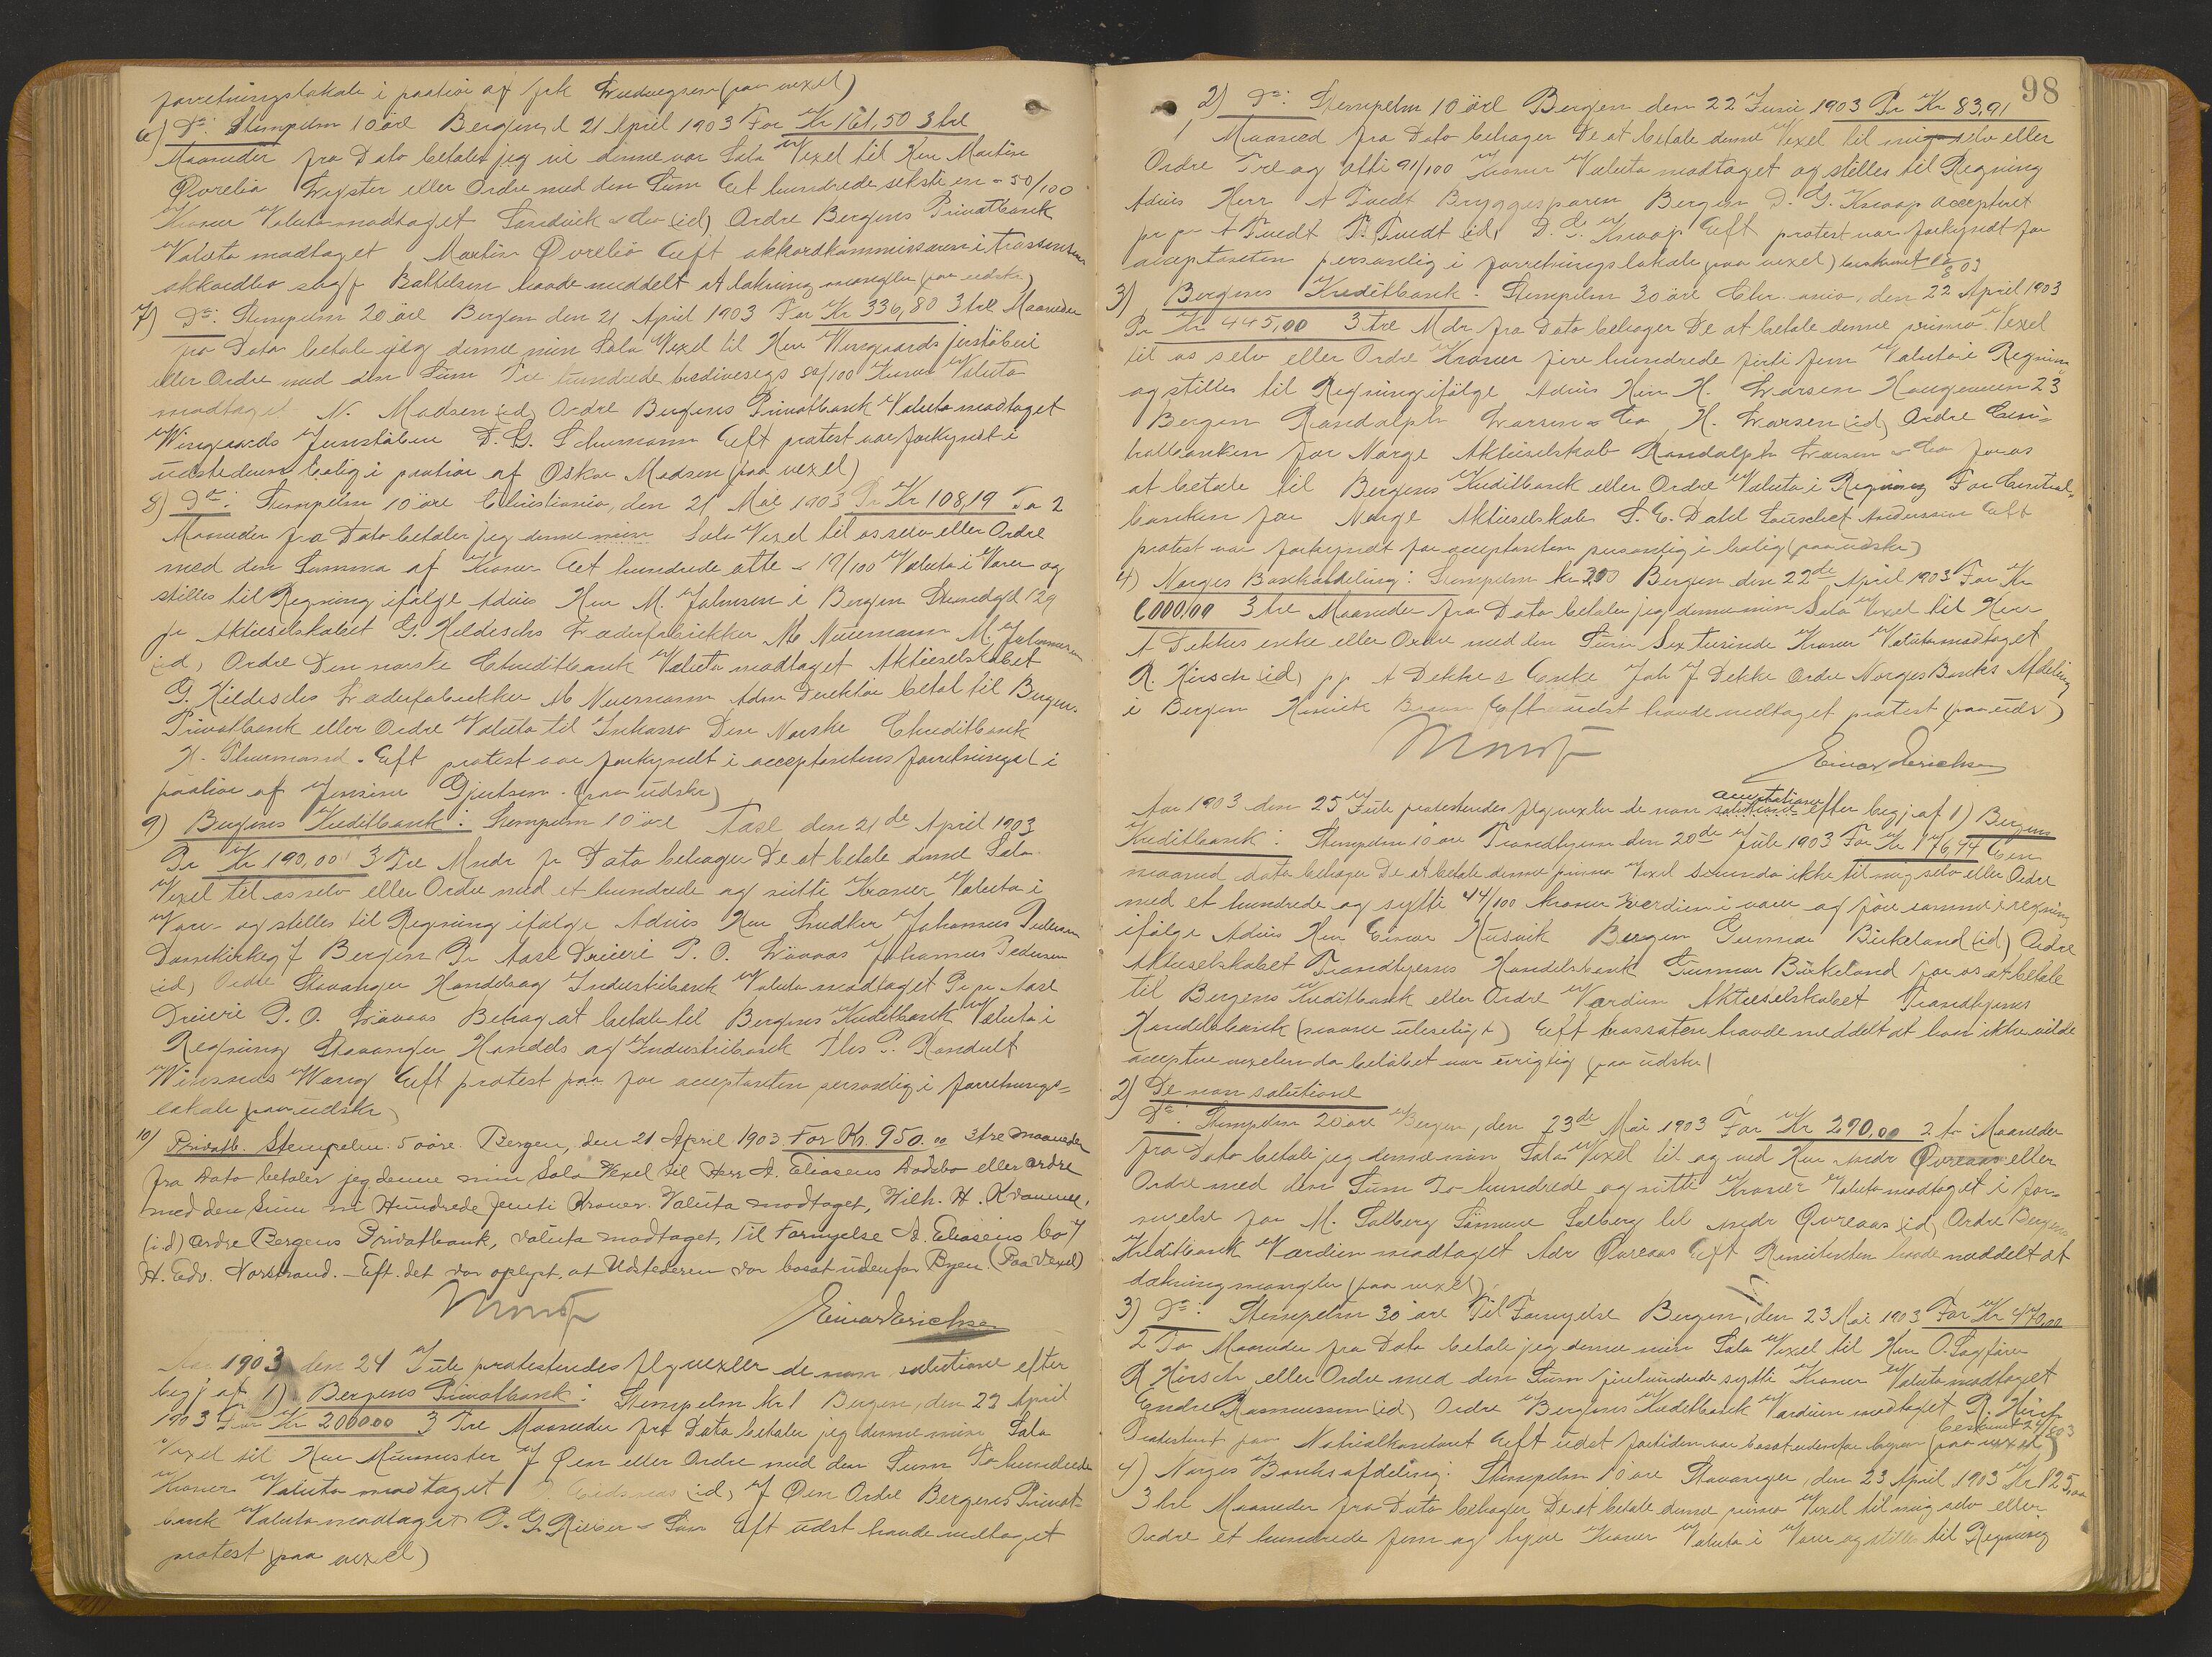 forretningslokale i paahør af frk Ludvigsen (paa vexel)
6) Do: Stempelm 10 öre Bergen, d 21 April 1903 For Kr 161,50 3 tre
Maaneder fra Dato betaler jeg vi denne vor Sola Vexel til Herr Martin
Øvrebø eller Ordre med den Sum Et hundrede seksti en - 50/100
Kroner Valuta modtaget Sandvik & Co (id) Ordre Bergens Privatbank
Valuta modtaget Martin Øvrebø Eft akkordkommissæren i
akkordbo sagf Battelsen havde meddelt at dækning mangler (paa udskr)
7) Do: Stempelm 20 öre Bergen den 21 April 1903 For Kr 336,80 3 tre Maaneder
fra Dato betaler jeg denne min Sola Vexel til Herr Wingaards jernstöberi
eller Ordre med den Sum Tre hundrede tredivesegs 80/100 Kroner Valuta
modtaget N. Madsen (id) Ordre Bergens Privatbank Valuta modtaget
Wingaards Jernstöberi D. G. Schumann Eft protest var forkyndt i
udstederens bolig i paahør af Oskar Madsen (paa vexel)
8) Do: Stempelm 10 öre Christiania, den 21 Mai 1903 Pr Kr 108,19 To 2
Maaneder fra Dato betaler jeg denne min Sola Vexel til os selv eller Ordre
med den Summa af Kroner Et hundrede otte & 19/100 Valuta i Varer og
stilles til Regning ifølge Advis Herr M. Johnsen i Bergen 129
pr Aktieselskabet G. Hildischs Læderfabrikker M Neuemann M. Johannesen
(id) Ordre Den norske Creditbank Valuta modtaget Aktieselskabet
G. Hildischs Læderfabrikker M Neuermann Adm Direktör betal til Bergens
Privatbank eller Ordre Valuta til Inkasso Den Norske Creditbank
H. Thurmand. Eft protest var forkyndt i acceptantens forretningsl i
paahør af Jensine Gjertsen. (paa udskr)
9) Bergens Kreditbank: Stempelm 10 öre Aasl den 21de April 1903
Pr Kr 190,00 3 Tre Mndr fr Dato behager De at betale denne Sola
Vexel til os selv eller Ordre med et hundrede og nitti Kroner Valuta i
Vare og stilles til Regning ifølge Advis Herr Snedker Johannes Pedersen
Domkirkeg 7 Bergen Pr Aasl Drueri P. O. Lövaas Johannes Pedersen
(id) Ordre Stavanger Handels og Industribank Valuta modtaget Pr pr Aasl
Drueri P. O. Lövaas Betrag at betale til Bergens Kreditbank Valuta i
Regning Stavanger Handels og Industribank Ths P. Randulf
Winsnes Wang Eft protest paa for acceptanten personlig i forretnings-
lokale (paa udskr)
10) Privatb. Stempelm. 50 öre. Bergen, den 21 April 1903 For Kr. 950.00 3 tre maaneder
fra Dato betaler jeg denne min Sola Vexel til Herr A. Eliasens Dødsbo eller ordre
med den Sum ni Hundrede femti Kroner. Valuta modtaget, Wilh. H. Krammer,
(i.d) ordre Bergens Privatbank, valuta modtaget, til Fornyelse A. Eliasens bo 7
H. Edv. Norstrand. — Eft. det var oplyst, at Udstederen var bosat udenfor Byen. (Paa Vexel)
Einar Erichsen
Aar 1903 den 24 Juli protesteredes flg vexler de non solutione efter
begj af 1) Bergens Privatbank: Stempelm Kr 1 Bergen, den 23 April
1903 For Kr 200000 3 Tre Maaneder fra Dato betaler jeg denne min Sola
Vexel til Herr Murmester J Øen eller Ordre med den Sum To hundrede
Kroner Valuta modtaget (id) J Øen Ordre Bergens Privat-
bank Valuta modtaget P. G. Rieber & Søn Eft udst havde vedtaget
protest (paa vexel)
98
2) Do: Stempelm 10 öre Bergen den 22 Juni 1903 Pr Kr 83,91
1 Maaned fra Dato behager De at betale denne Vexel til mig selv eller
Ordre Tre og otti 91/100 Kroner Valuta modtaget og stilles til Regning
Advis Herr A Tvedt Bryggesporen Bergen D. G. Knoop accepteret
pr pr A Tvedt P. Tvedt (id) D. G. Knoop Eft protest var forkyndt for
acceptanten personlig i forretningslokale (paa vexel)
3) Bergens Kreditbank. Stempelm 30 öre Chr.ania, den 22 April 1903
Pr Kr 445,00 3 tre Mdr fra Dato behager De at betale denne prima Vexel
til os selv eller Ordre Kroner fire hundrede firti fem Valuta i Regning
og stilles til Regning ifölge Advis Herr H. Larsen Haugeveien 23
Bergen Randolph Larsen & Co H. Larsen (id) Ordre Cen-
tralbanken for Norge Aktieselskab Randolph Larsen & Co for os
at betale til Bergens Kreditbank eller Ordre Valuta i Regning For Central
banken for Norge Aktieselskab S. E. Dahl Souschef Anderssen Eft
protest var forkyndt for acceptanten personlig i bolig (paa udskr)
4) Norges Bankafdeling: Stempelm kr 3,00 Bergen den 22de April 1903 For Kr
6000,00 3 tre Maaneder fra Dato betaler jeg denne min Sola Vexel til Herr
A Dekkes enke eller Ordre med den Sum Sex tusinde Kroner Valuta modtaget
R. Hirsch (id) pp A Dekkes Enke Joh J Dekke Ordre Norges Banks Afdeling
i Bergen Henrik Eft udst havde vedtaget protest (paa uds)
Einar Erichsen
acceptatione
Aar 1903 den 25 Juli protesteredes flg vexler de non solutione efter begj af 1) Bergens
Kreditbank: Stempelm 10 öre Trondhjem den 20de Juli 1903 For Kr 176,44 Een
maaned dato behager De at betale denne prima Vexel secunda ikke til mig selv eller Ordre
med et hundrede og sytti 44/100 kroner Værdien i varer og före samme i regning
ifölge Advis Herr Einar Husvik Bergen Gunnar Birkeland (id) Ordre
Aktieselskabet Trondhjems Handelsbank Gunnar Birkeland for os at betale
til Bergens Kreditbank eller Ordre Værdien Aktieselskabet Trondhjems
Handelsbank (navne uleseligt) Eft trassaten havde meddelt at han ikke vilde
acceptere vexelen da beløbet var urigtig (paa udskr)
2) De non solutione
Do: Stempelm 20 öre Bergen, den 23de Mai 1903 For Kr 290,00 2 to Maaneder
fra Dato betaler jeg denne min Sola Vexel til og ved Herr Andr Øvreaas eller
Ordre med den Sum To hundrede og nitti Kroner Valuta modtaget i for-
nyelse for M. Solberg Simmine Solberg til Andr Øvreaas (id) Ordre Bergens
Kreditbank Værdien modtaget Adr Øvreaas Eft Remittenten havde meddelt at
dækning mangler (paa vexel)
3) Do: Stempelm 30 öre Til Fornyelse Bergen, den 23 Mai 1903 For Kr 470,00
2 To Maaneder fra Dato betaler jeg denne min Sola Vexel til Herr O. Sagförer
R Hirsch eller Ordre med den Sum firehundrede sytti Kroner Valuta modtaget
Endre Rasmussen (id) Ordre Bergens Kreditbank Værdien modtaget R. Hirsch
Protesteret paa Notarialkontoret Eft udst fortiden var bosat udenfor byen (paa vexel)
4) Norges Banks afdeling: Stempelm 10 öre Stavanger, den 23 April 1903 Kr 125,00
3 tre Maaneder fra Dato behager De at betale denne prima Vexel til mig selv eller
Ordre et hundrede fem og tyve Kroner Valuta i Varer og stilles til Regning